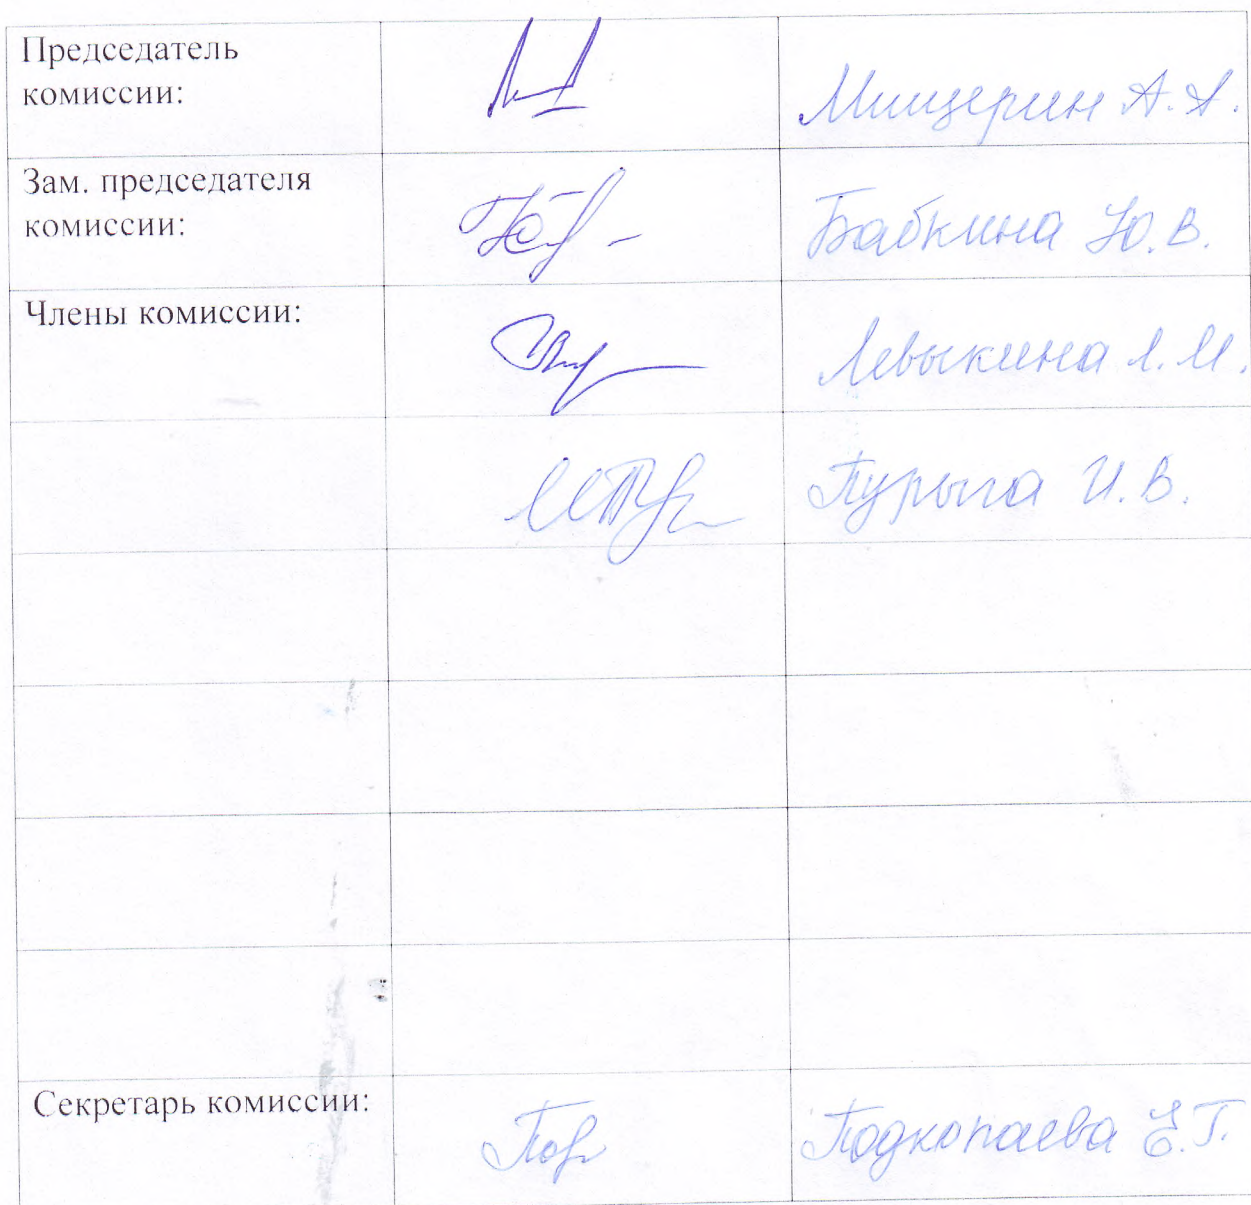 Председатель
комиссии:
Мищерин А.А.
Зам. председателя
комиссии:
Бабкина Ю.В.
Члены комиссии:
Левыкина Л.И.
Пурыга И.В.
Секретарь комиссии:
Подкопаева Е.Г.